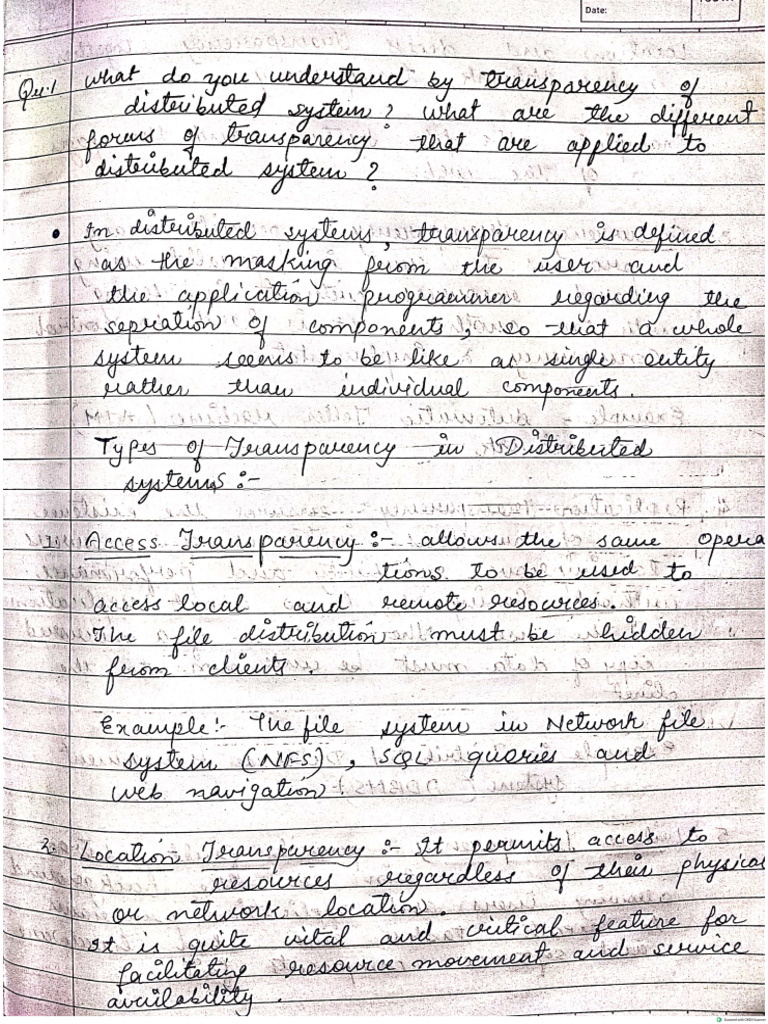 Date:
Qu.1 what do you understand by transparency of
distributed system? what are the different
forms of transparency that are applied to
distributed system?
• In distributed systems, transparency is defined
as the masking from the user and
the application programmer regarding the
sepration of components, so that a whole
system seems to be like a single entity
rather than individual components.
Types of Transparency in Distributed
systems :-
1. Access Transparency :- allows the same opera
tions to be used to
access local and remote resources.
The file distribution must be hidden
from clients.
Example :- The file system in Network file
system (NFS), SQL queries and
web navigation.
2. Location Transparency :- It permits access to
resources regardless of their physical
or network location.
It is quite vital and critical feature for
facilitating resource movement and service
availability.